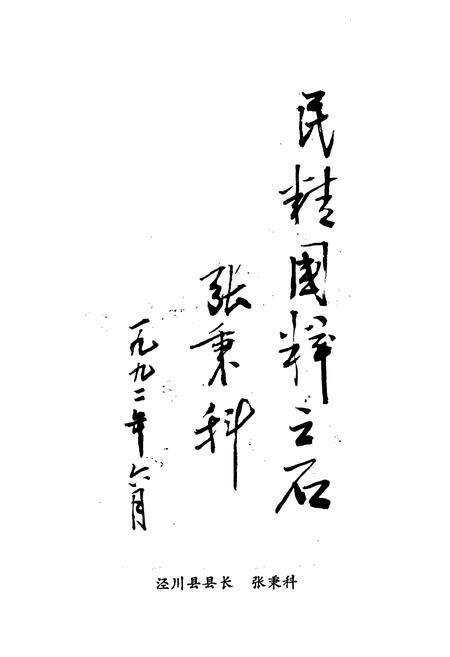 民精國粹之石
张秉科
一九九二年六月
泾川县县长 张秉科